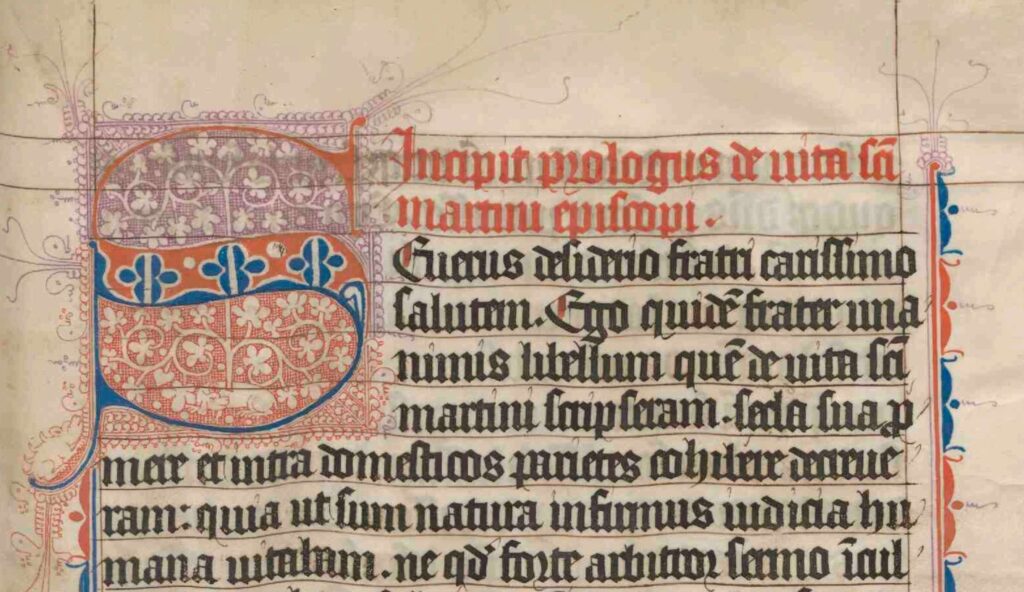 Incipit prologus de uita sc̄i
martini episcopi.
SEuerus desiderio fratri carissimo
salutem. Ego quidē frater una
nimis libellum quē de uita sc̄i
martini scripseram. scela sua p̱
mere et intra domesticos parietes cohibere decreue
ram: quia ut sum natura infirmus iudicia hu
mana uitabam. ne qd̓ forte arbitror sermo īcul